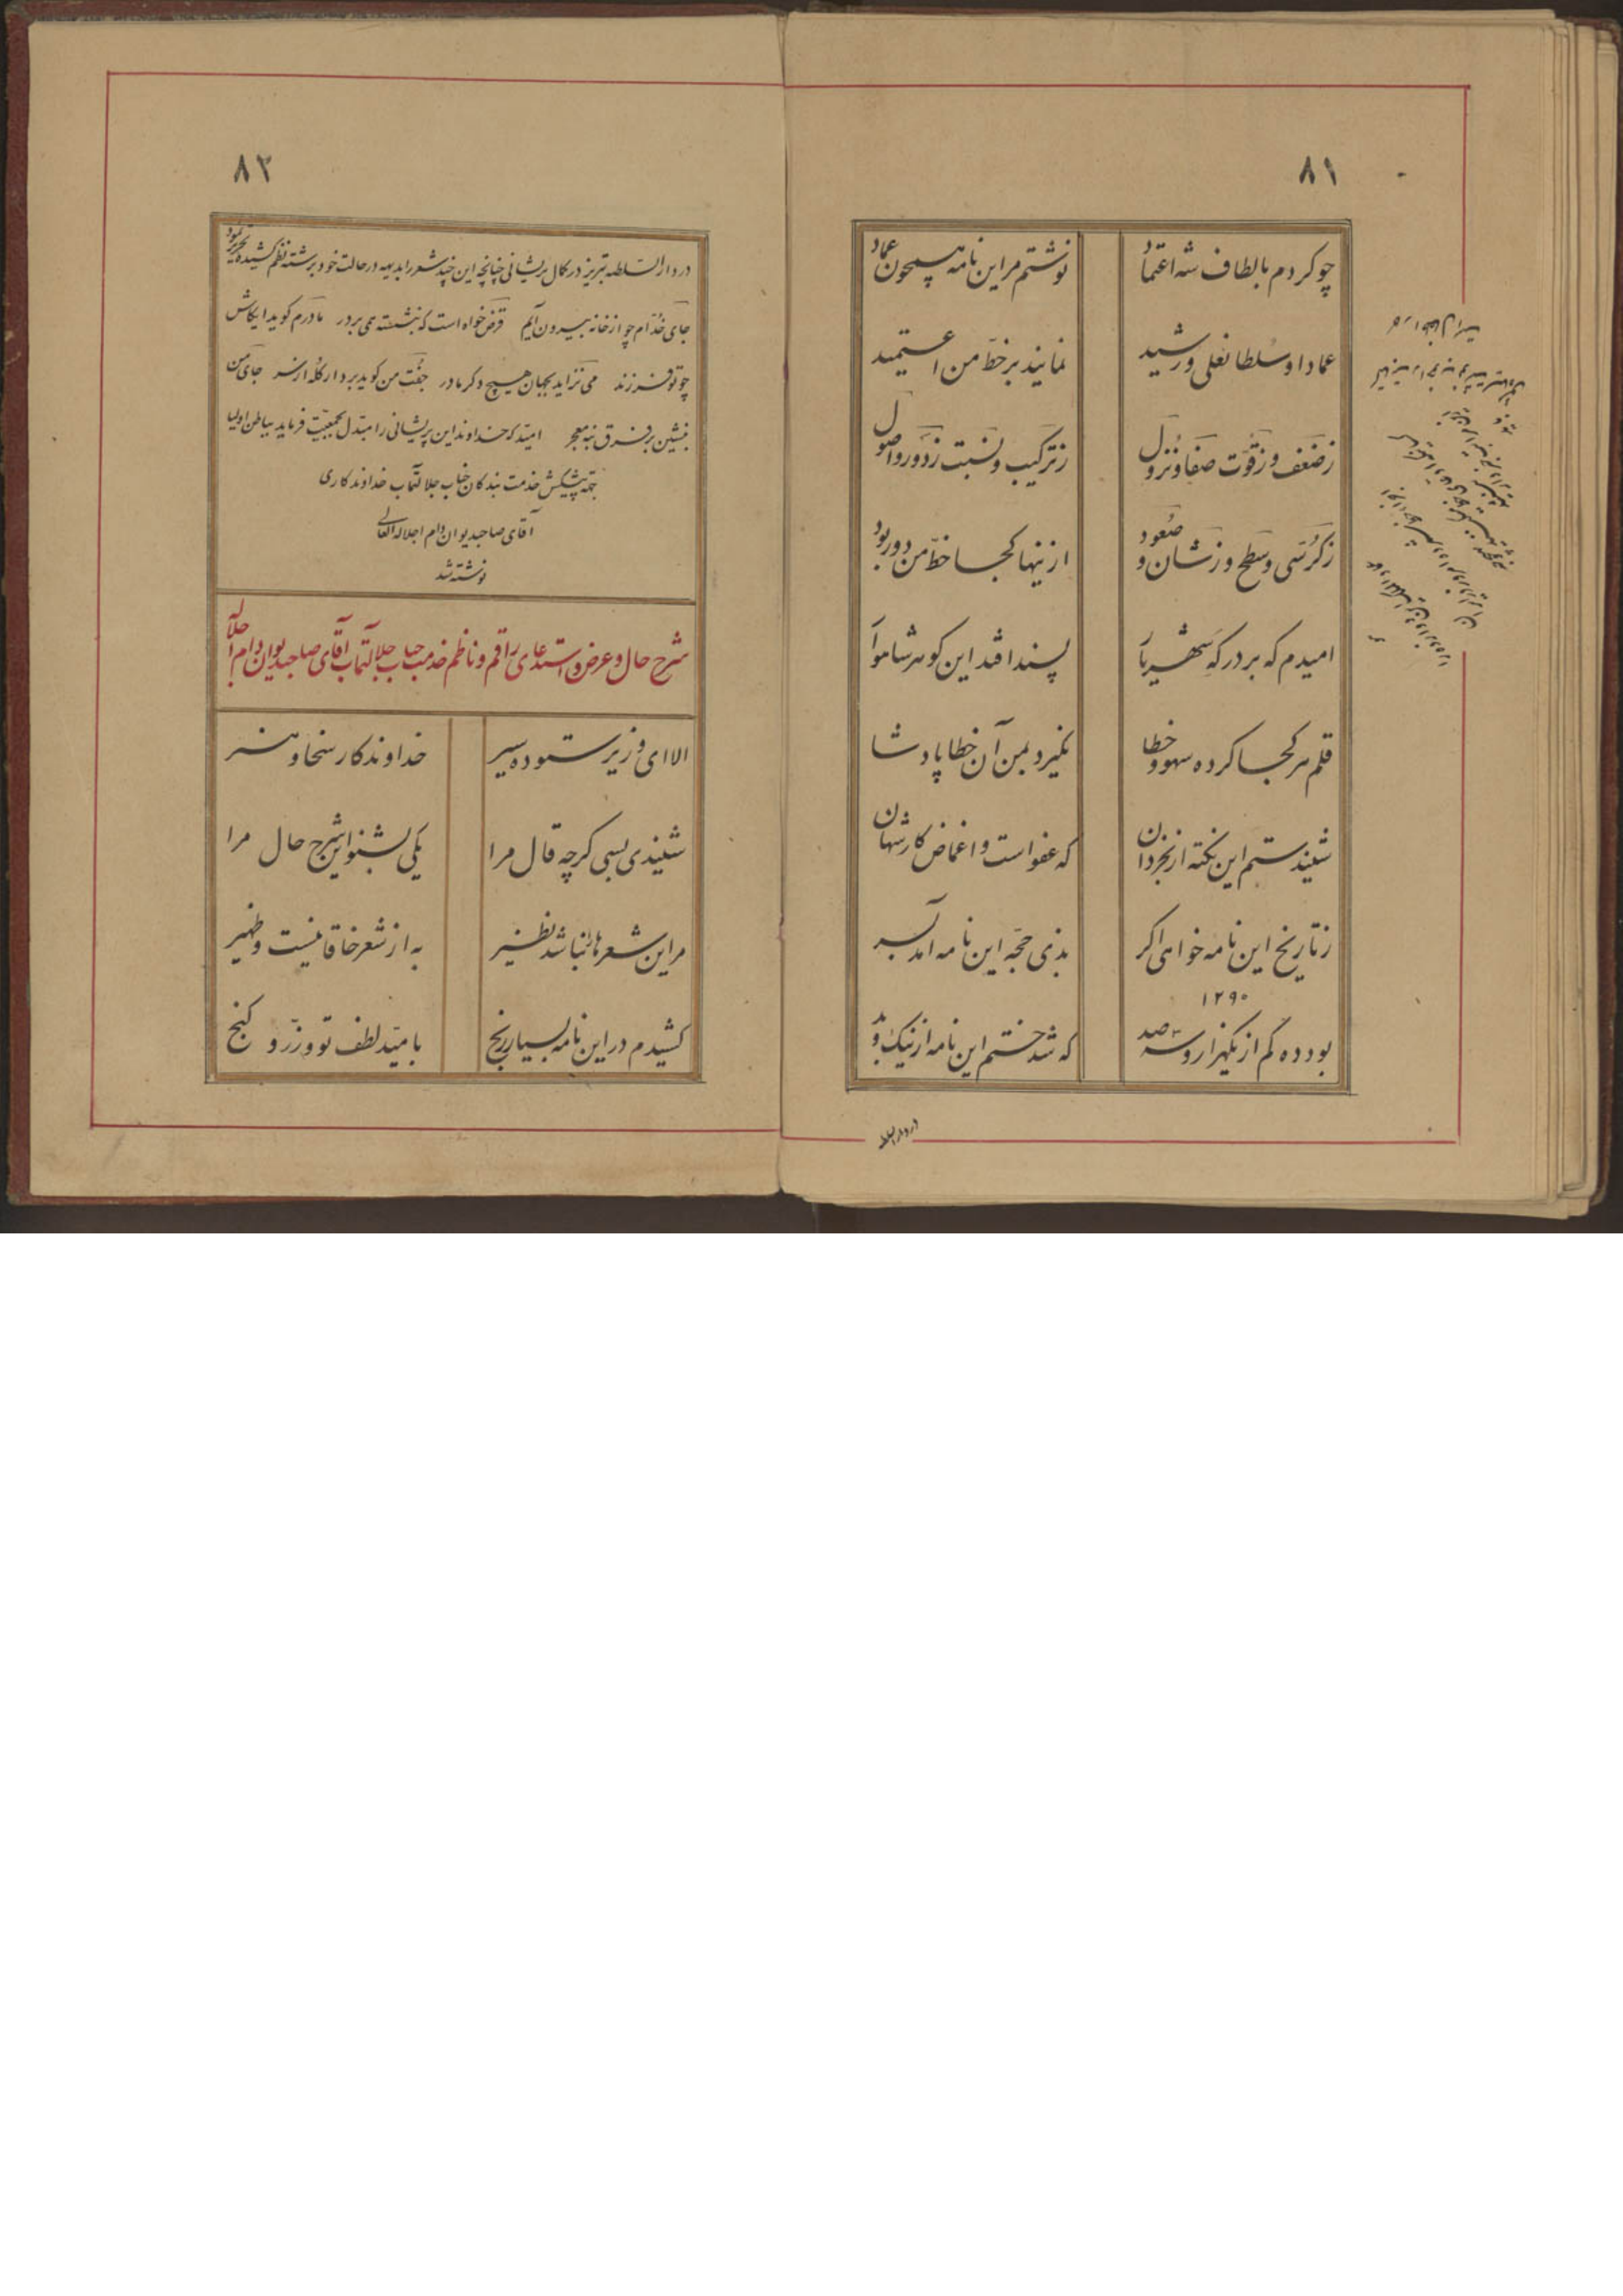 ۸۱
چو کردم بالطاف شه اعتماد نوشتم مر این نامه همچون عماد
عماد او سلطانعلی و رشید نمایند بر خط من اعتمید
ز ضعف و ز قوت صفا و نزول ز ترکیب و نسبت ز دور و اصول
ز کرسی و سطح و ز شان و صعود ازینها کجا خط من دور بود
امیدم که بر درکه شهریار پسند افتد این کوهر شاهوار
قلم هر کجا کرده سهو و خطا نکیرد بمن آن خطا پادشا
شنیدستم این نکته از بخردان که عفو است و اغماض کار شهان
ز تاریخ این نامه خواهی اکر بذی حجه این نامه آمد بسر
۱۲۹۰
بود ده کم از یکهزار و سه صد که شد ختم این نامه از نیک و بد
در دار السلطنه
۸۲
در دار السلطنه تبریز در کمال پریشانی چنانچه این چند شعر را بدیهه در حالت خود برشته نظم کشیده تحریر نمود
جای خدام چو از خانه بیرون آیم قرض خواه است که بنشسته همی بر در مادرم کوید ایکاش
چو تو فرزند می نزاید بجهان هیچ دکر مادر جفت من کوید بردار کله از سر جای من
بنشین بر فرق بنه معجر امید که خداوند این پریشانی را مبدل بجمعیت فرماید بباطن اولیا
بجهة پیشکش خدمت بندکان جناب جلالتمآب خداوندکاری
آقای صاحبدیوان دام اجلاله العالی
نوشته شد
شرح حال و عرض و استدعای راقم و ناظم خدمت جناب جلالتمآب آقای صاحبدیوان دام اجلاله
الا ای وزیر ستوده سیر خداوندکار سخا و هنر
شنیدی بسی کرچه قال مرا یکی بشنو این شرح حال مرا
مر این شعرها را نباشد نظیر به از شعر خاقانیست و ظهیر
کشیدم در این نامه بسیار رنج بامید لطف تو و زر و کنج